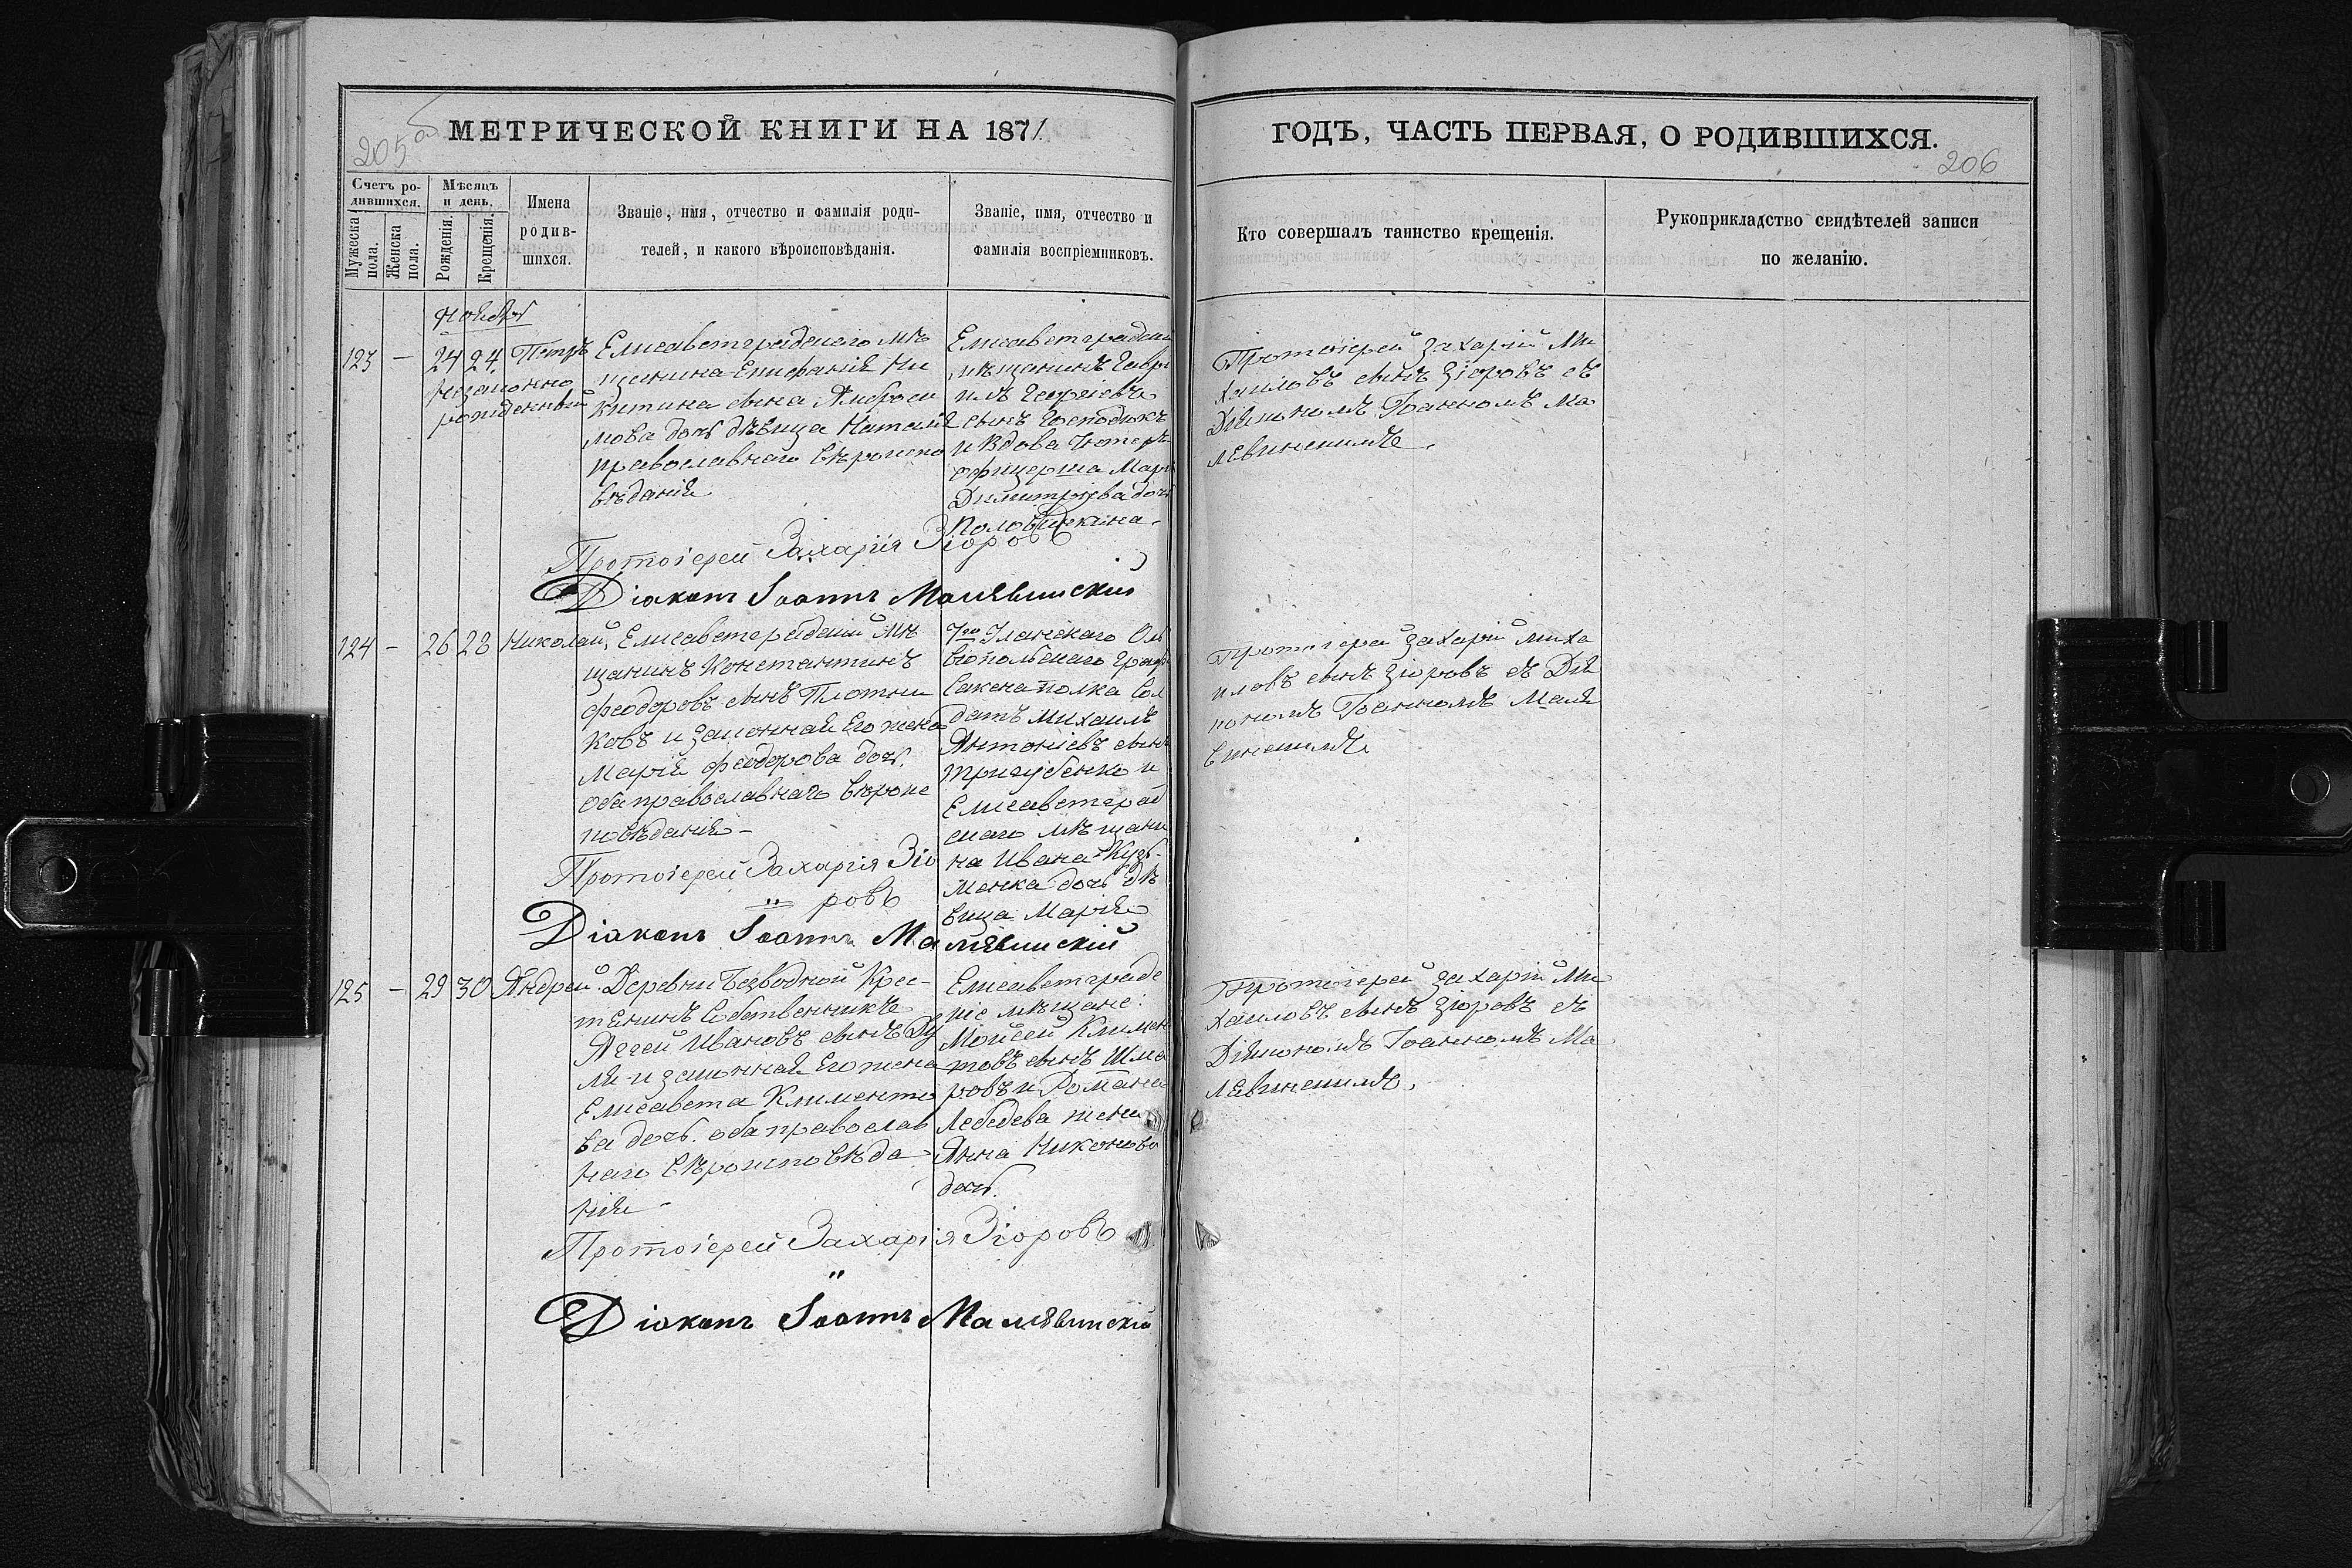 205 об
МЕТРИЧЕСКОЙ КНИГИ НА 1871
Счетъ ро-
дившихся.
Мужеска
пола.
Женска
пола.
Мѣсяцъ
и день.
Рожденія.
Крещенія.
Имена
родив-
шихся.
Званіе, имя, отчество и фамилія роди-
телей, и какого вѣроисповѣданія.
Званіе, имя, отчество и
фамилія воспріемниковъ.
Ноябрь
123 — 24 24. Петръ
незаконно
рожденный
Елисаветградскаго мѣ
щанина Епифанія Ни
китина сына Амброси
мова дочь дѣвица Наталія
православнаго вѣроиспо
вѣданія
Елисаветградскій
мѣщанинъ Гаврі
илъ Георгіевъ
сынъ Господюкъ
и вдова Унтеръ
офицерша Марі
Димитріева дочь
Половинкина.
Протоіерей Захарія Зіоровъ
Діаконъ Іоаннъ Малявинскій
124 — 26 28 Николай,
Елисаветградскій мѣ
щанинъ Константинъ
Феодоровъ сынъ Плотни
ковъ и законная Его жена
Марія Феодорова дочь.
оба православнаго вѣроис
повѣданія —
7го Уланскаго Оль
віопольскаго Граф
Сакена полка Сол
датъ Михаилъ
Антоніевъ сынъ
Тригубенко и
Елисаветград
скаго мѣщани
на Ивана Кузь-
менка дочь дѣ
вица Марія
Протоіерей Захарія Зіо
ровъ
Діаконъ Іоаннъ Малявинскій
125 — 29 30 Андрей.
Деревни Безводной Крес-
тянинъ Собственникъ
Аггей Ивановъ сынъ
ля и законная Его жена
Елисавета Клименто
ва дочь. оба православ
наго вѣроисповѣда
нія —
Елисаветградс
кіе мѣщане:
Мойсей Климен
товъ сынъ Шма
ровъ и Романа
Лебедева жена
Анна Никонова
дочь.
Протоіерей Захарія Зіоровъ
Діаконъ Іоаннъ Малявинскій
ГОДЪ, ЧАСТЬ ПЕРВАЯ, О РОДИВШИХСЯ.
206
Кто совершалъ таинство крещенія.
Рукоприкладство свидѣтелей записи
по желанію.
Протоіерей Захарій Ми
хаиловъ сынъ Зіоровъ съ
Діякономъ Іоанномъ Ма
лявинскимъ.
Протоіерей Захарій Миха
иловъ сынъ Зіоровъ съ Дія
кономъ Іоанномъ Маля
винскимъ
Протоіерей Захарій Ми
хаиловъ сынъ Зіоровъ съ
Діякономъ Іоанномъ Ма
лявинскимъ.